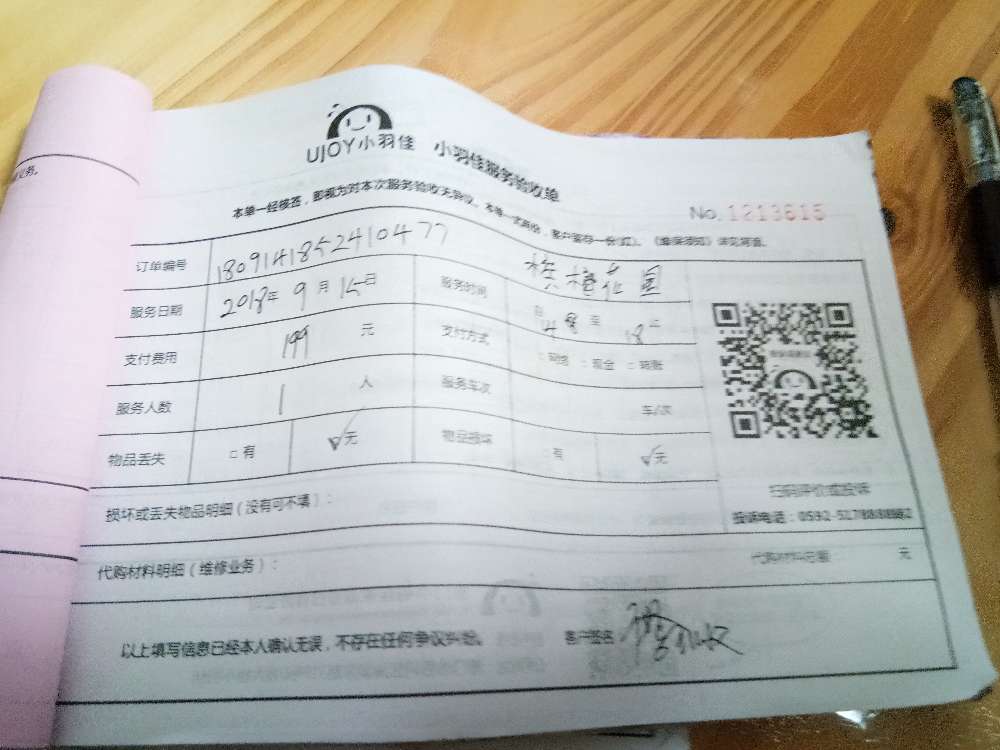 务。
UJOY小羽佳 小羽佳服务验收单
本单一经核签，即视为对本次服务验收无异议。本单一式两份，客户留存一份(红)。《维保须知》详见背面。
No. 1213615
订单编号 18091418524104 77
服务日期 2018年 9 月 15日 服务时间
支付费用 199 元 支付方式 □网络 □现金 □转账
服务人数 1 人 服务车次 车/次
物品丢失 □有 ☑无 物品损坏 □有 ☑无
扫码评价或投诉
损坏或丢失物品明细（没有可不填）：
投诉电话：0592-5178888
代购材料明细（维修业务）： 代购材料总额 元
以上填写信息已经本人确认无误，不存在任何争议纠纷。 客户签名